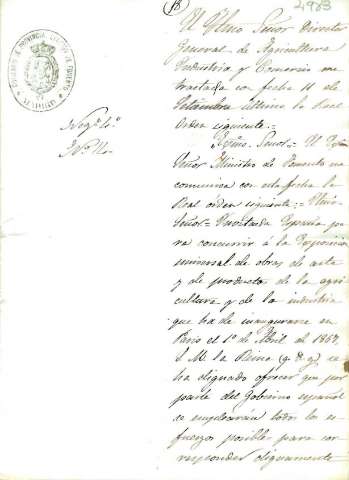 18
2983
El Ilmo Señor Director
General de Agricultura
Yndustria y Comercio me
traslada con fecha 11 de
Setiembre último la Real
Orden siguiente:=
Negdo
No
Señor= El
Señor Ministro de Fomento me
comunica con esta fecha la
Real órden siguiente:= Ilmo
Señor= Ynvitada España pa
ra concurrir á la Exposicion
universal de obras de arte
y de productos de la agri
cultura y de la industria
que ha de inaugurarse en
Paris el 1o de Abril de 1867,
S. M. la Reina (q. D. g.) se
ha dignado ofrecer que por
parte del Gobierno español
se emplearán todos los es
fuerzos posibles para cor
responder dignamente